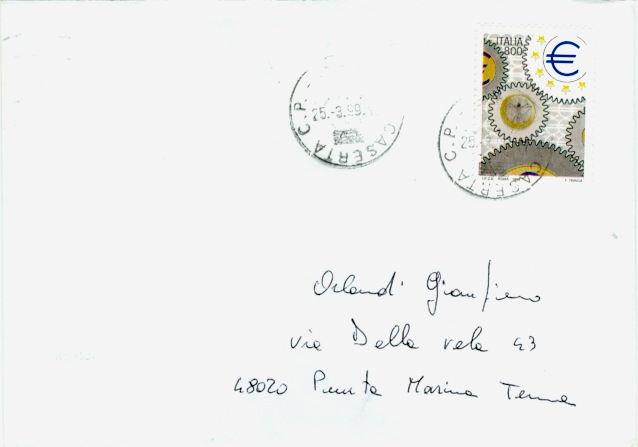 ITALIA
800
€
CASERTA C.P.
25.-3.99.
CASERTA C.P.
25
I.P.Z.S. ROMA
Orlandi Gianpiero
via Della vela 43
48020 Punta Marina Terme